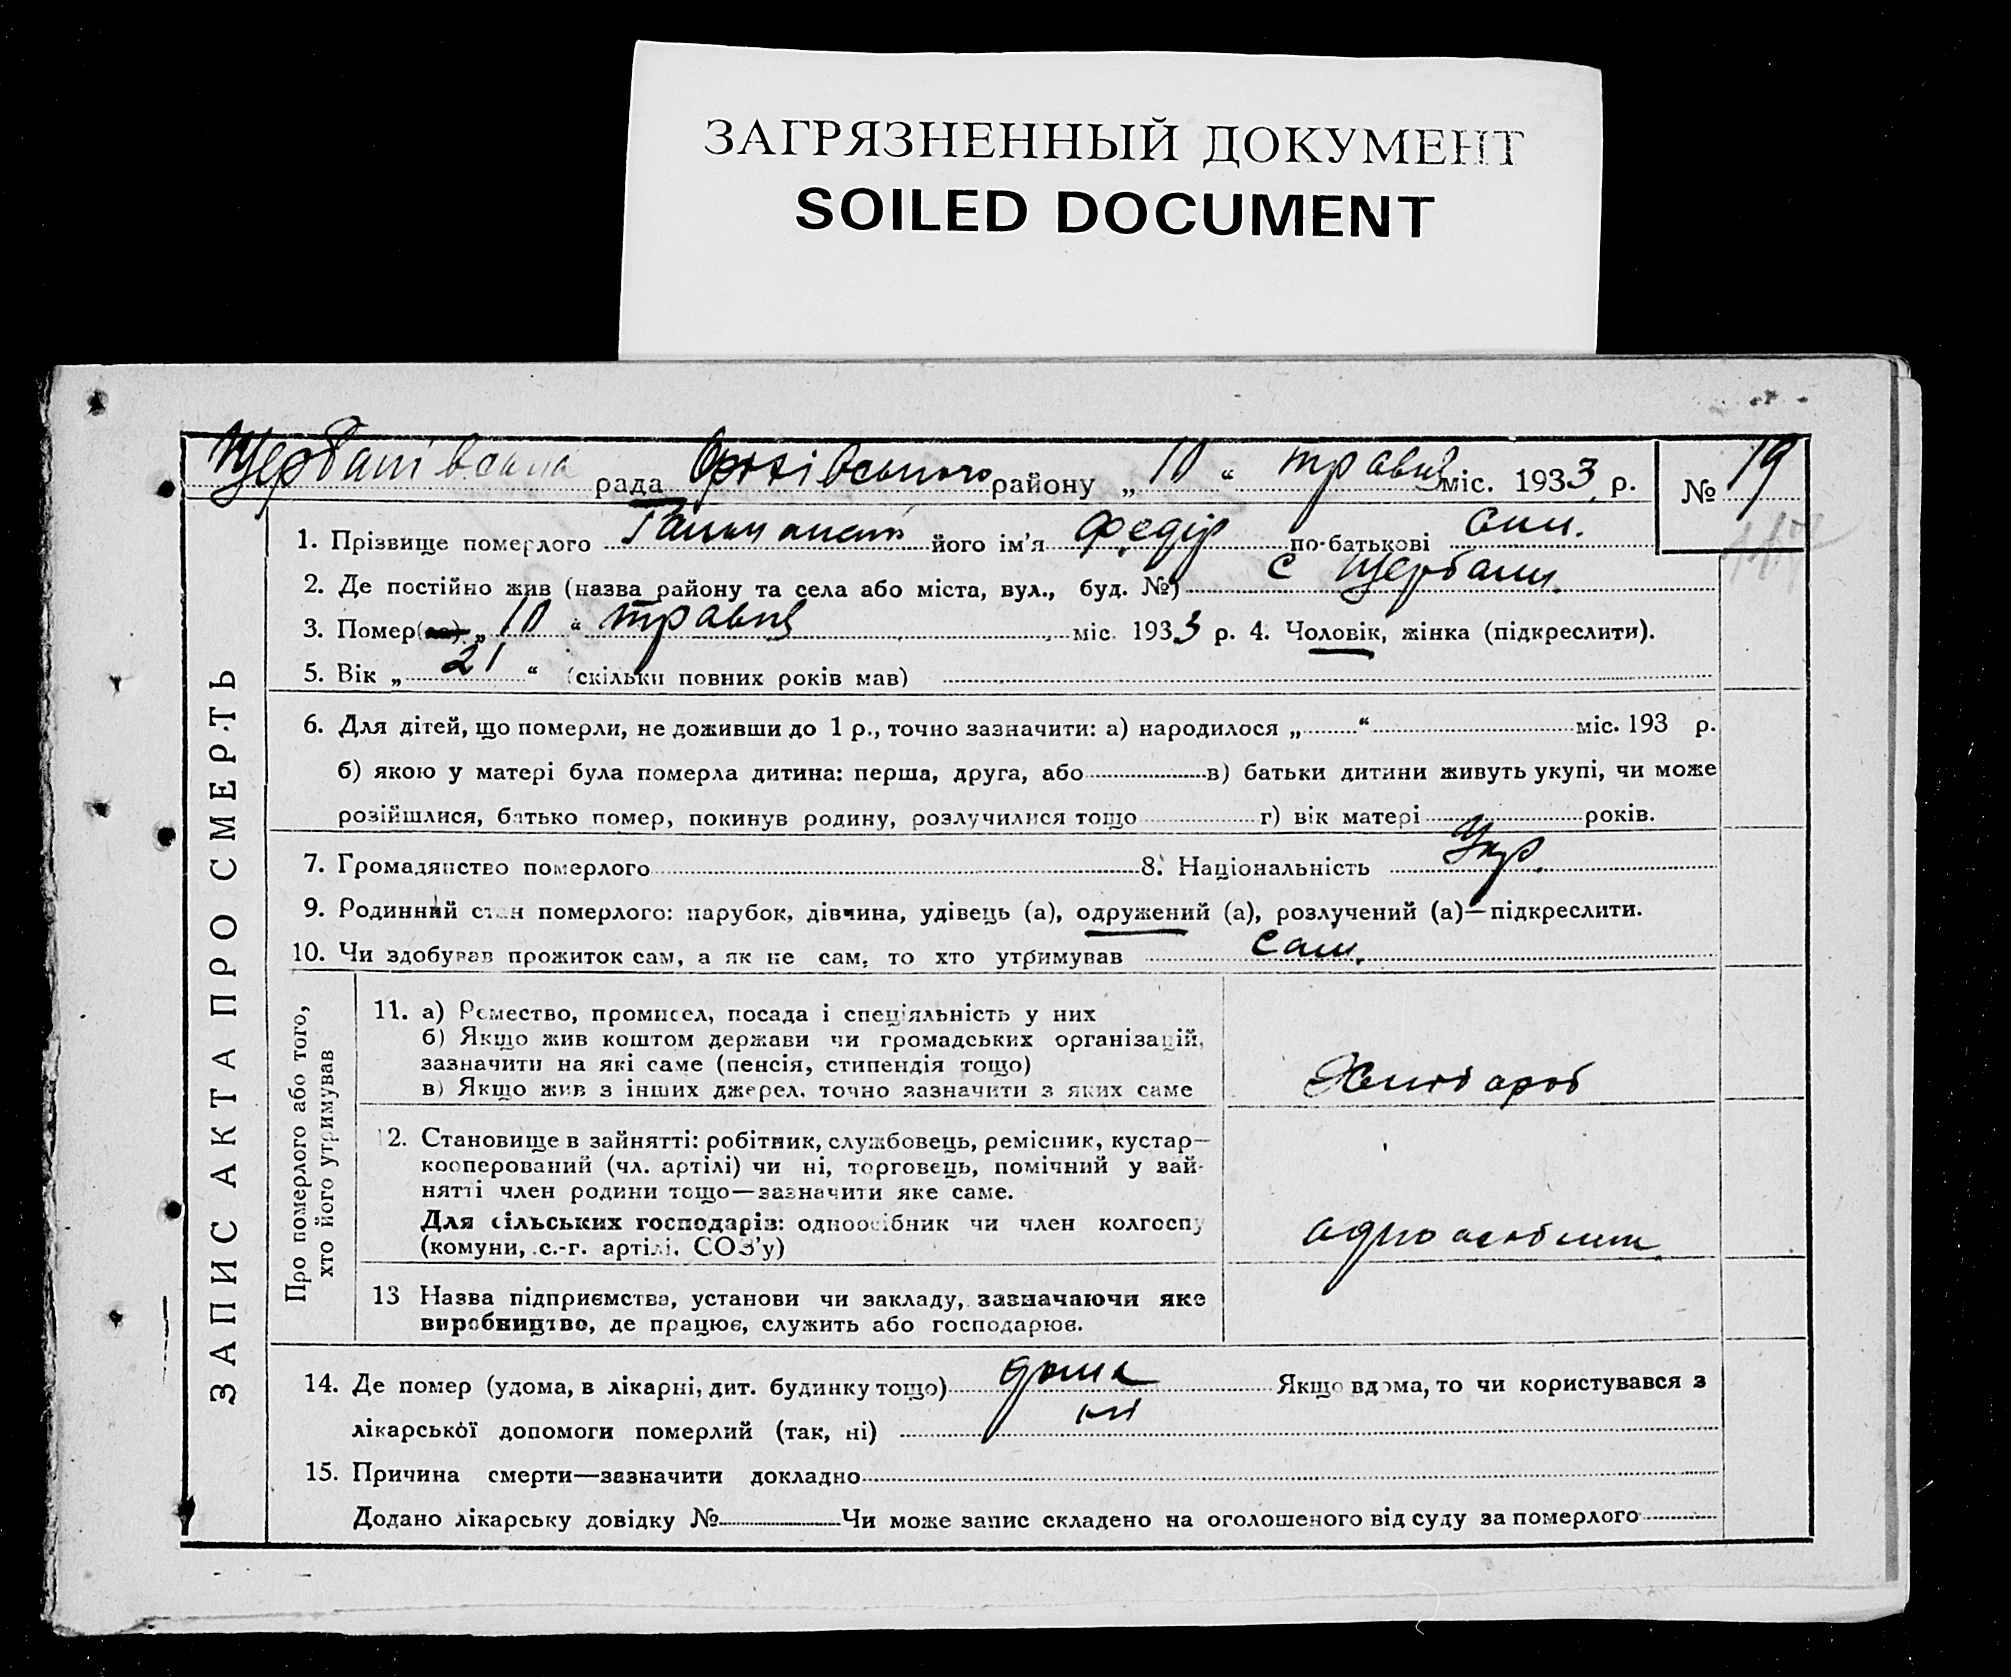 ЗАГРЯЗНЕННЫЙ ДОКУМЕНТ
SOILED DOCUMENT
Щербанівська рада району „ 10 “ травня міс. 1933 р. № 19
1. Прізвище померлого його ім’я Федір по-батькові
2. Де постійно жив (назва району та села або міста, вул., буд. №) с Щербани
3. Помер(ла) „ 10 “ травня міс. 1933 р. 4. Чоловік, жінка (підкреслити).
5. Вік „ 21 “ (скільки повних років мав)
6. Для дітей, що померли, не доживши до 1 р., точно зазначити: а) народилося „ “ міс. 193 р.
б) якою у матері була померла дитина: перша, друга, або в) батьки дитини живуть укупі, чи може
розійшлися, батько помер, покинув родину, розлучилися тощо г) вік матері років.
7. Громадянство померлого 8. Національність Укр.
9. Родинний стан померлого: парубок, дівчина, удівець (а), одружений (а), розлучений (а)—підкреслити.
10. Чи здобував прожиток сам, а як не сам, то хто утримував сам.
ЗАПИС АКТА ПРО СМЕРТЬ
Про померлого або того,
хто його утримував
11. а) Ремество, промисел, посада і спеціяльність у них
б) Якщо жив коштом держави чи громадських організацій,
зазначити на які саме (пенсія, стипендія тощо)
в) Якщо жив з інших джерел, точно зазначити з яких саме
Хлібороб
12. Становище в зайнятті: робітник, службовець, ремісник, кустар—
кооперований (чл. артілі) чи ні, торговець, помічний у зай-
нятті член родини тощо—зазначити яке саме.
Для сільських господарів: одноосібник чи член колгоспу
(комуни, с.-г. артілі, СОЗ’у)
13 Назва підприємства, установи чи закладу, зазначаючи яке
виробництво, де працює, служить або господарює.
14. Де помер (удома, в лікарні, дит. будинку тощо) дома Якщо вдома, то чи користувався з
лікарської допомоги померлий (так, ні) ні
15. Причина смерти—зазначити докладно
Додано лікарську довідку № Чи може запис складено на оголошеного від суду за померлого